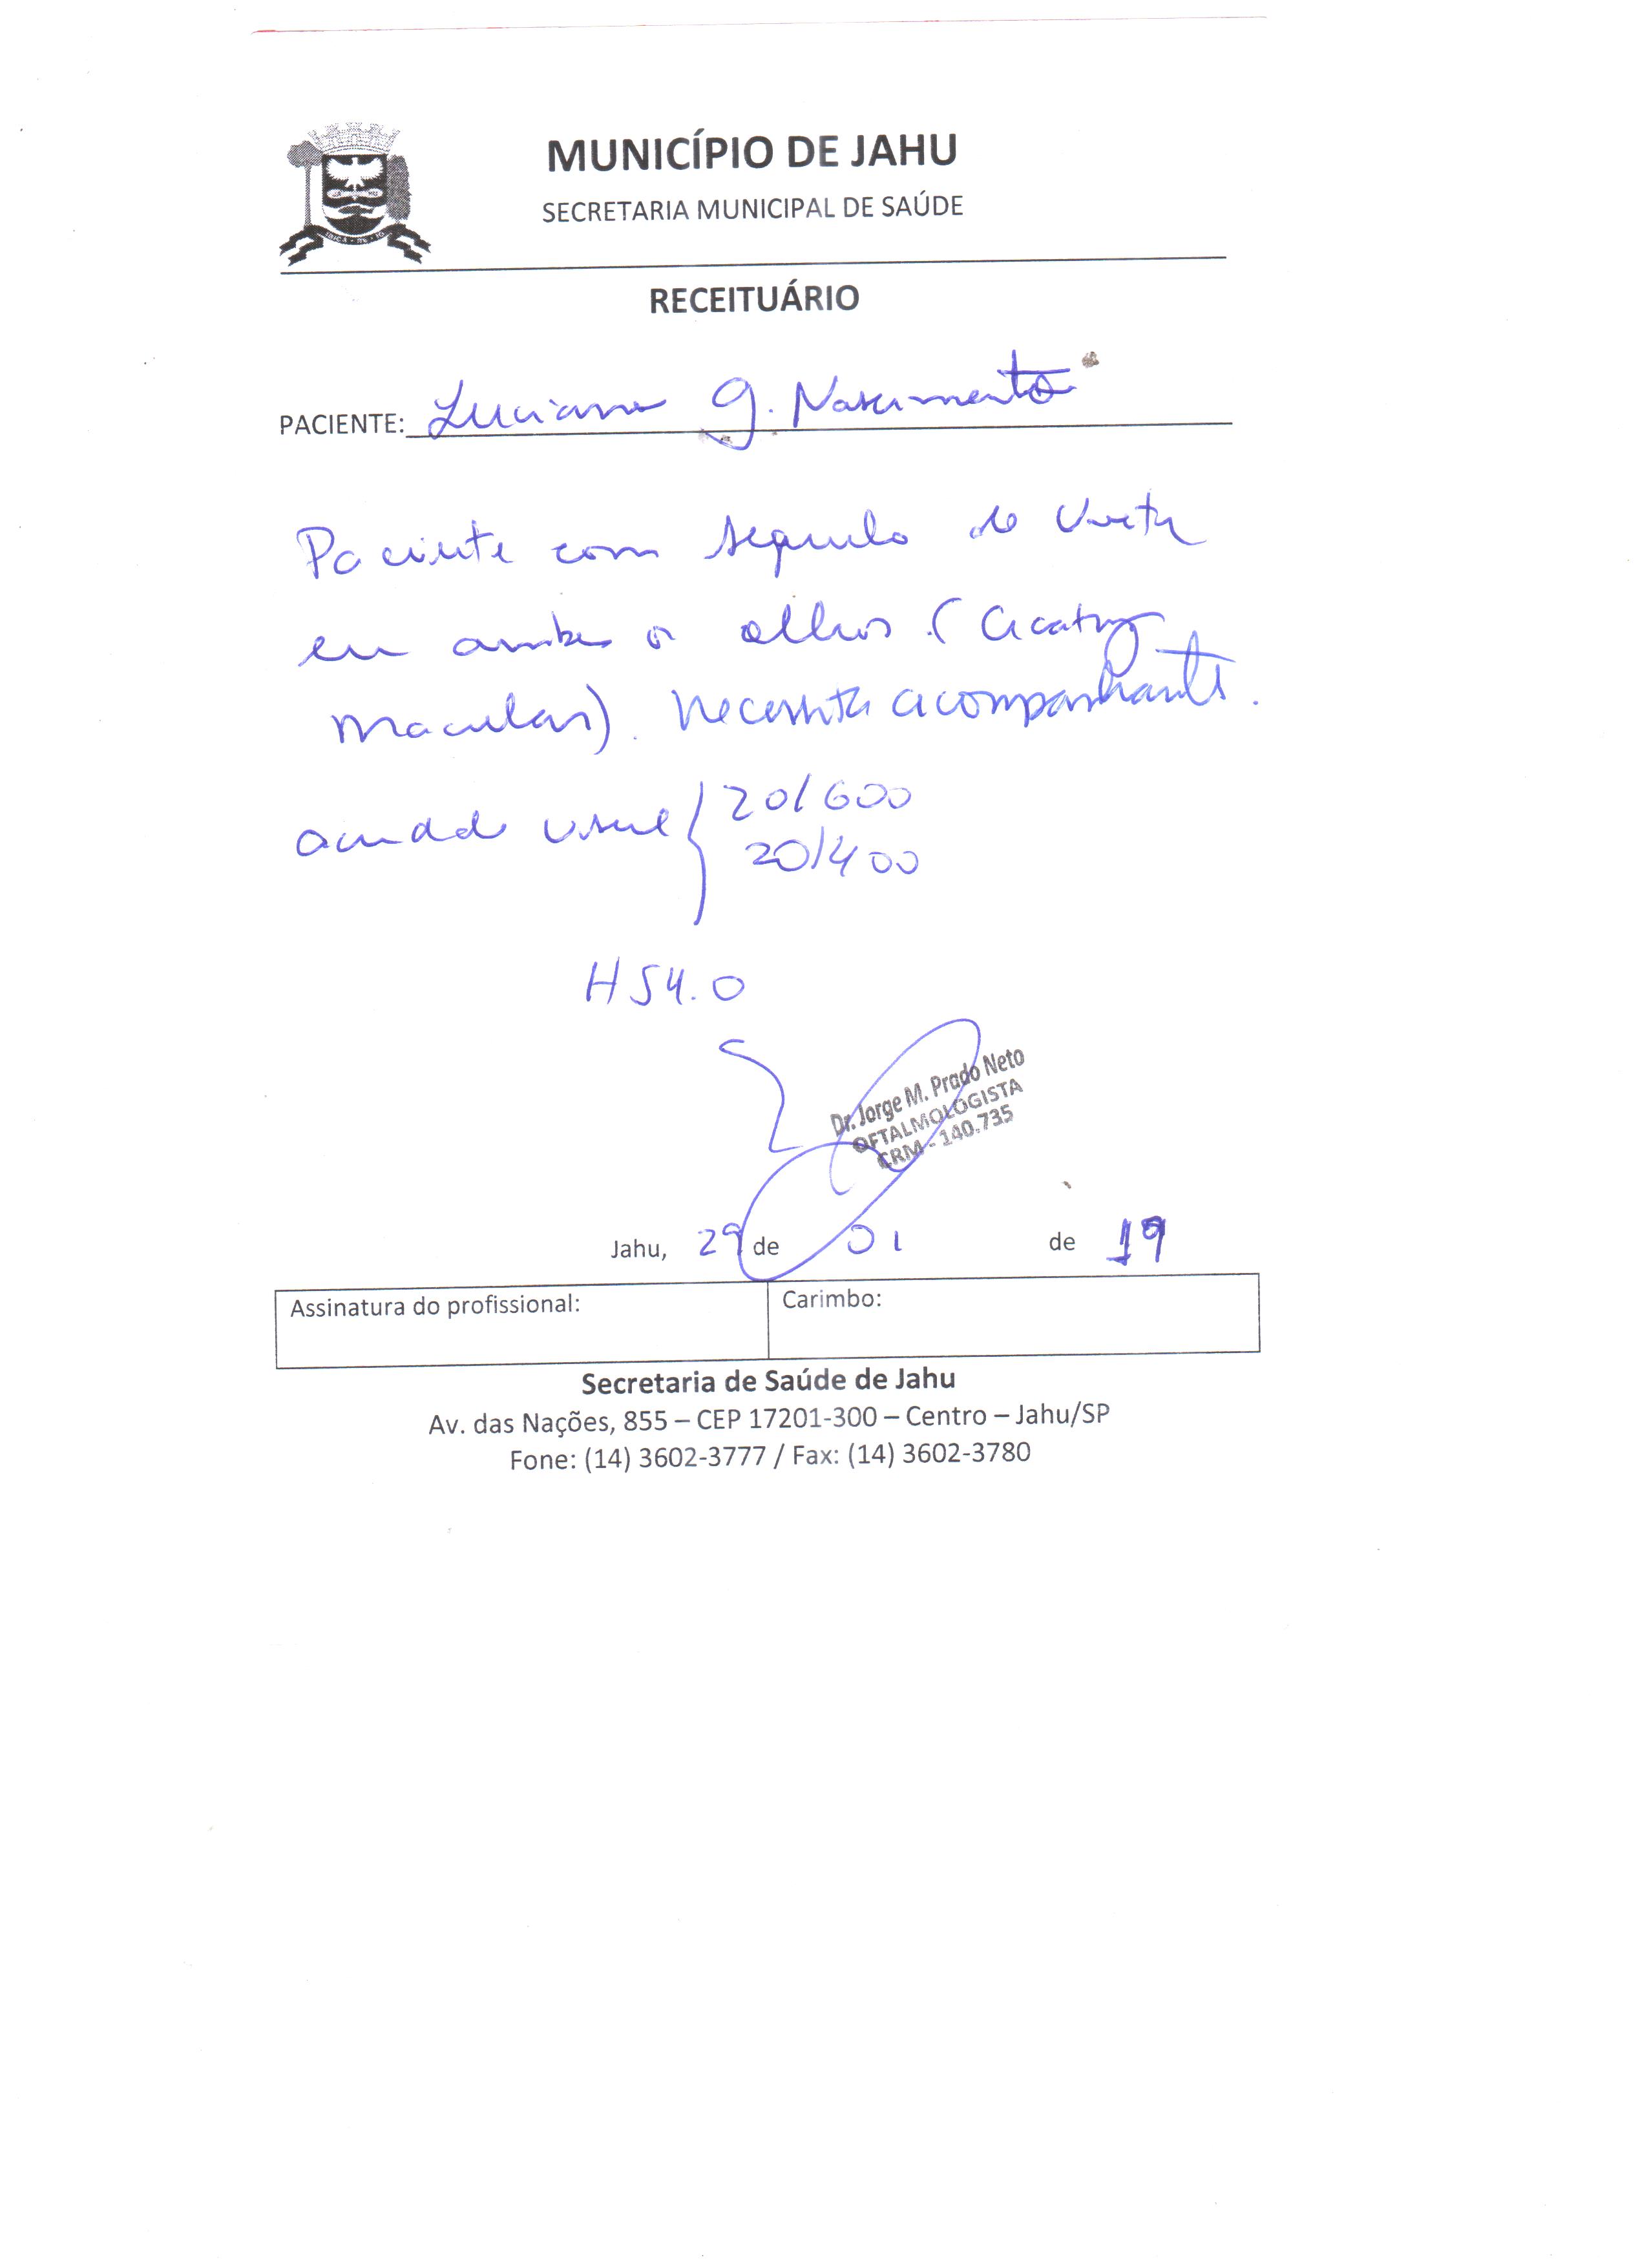 MUNICÍPIO DE JAHU
SECRETARIA MUNICIPAL DE SAÚDE
RECEITUÁRIO
PACIENTE: Luciano G. Nascimento
Paciente com sequela de
em ambos os olhos (cicatriz
macular). Necessita acompanhante.
acuidade visual { 20/600
20/400
H54.0
Dr. Jorge M. Prado Neto
OFTALMOLOGISTA
CRM - 140.735
Jahu, 29 de 01 de 19
Assinatura do profissional:
Carimbo:
Secretaria de Saúde de Jahu
Av. das Nações, 855 – CEP 17201-300 – Centro – Jahu/SP
Fone: (14) 3602-3777 / Fax: (14) 3602-3780